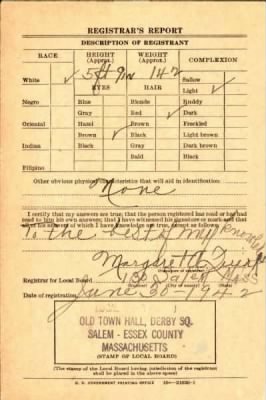 REGISTRAR'S REPORT
DESCRIPTION OF REGISTRANT
RACE HEIGHT (Approx.) WEIGHT (Approx.) COMPLEXION
5 ft 9 in 142
White ✓ Sallow
EYES HAIR Light ✓
Negro Blue Blonde Ruddy
Gray Red ✓ Dark
Oriental Hazel Brown Freckled
Brown ✓ Black Light brown
Indian Black Gray Dark brown
Bald Black
Filipino
Other obvious physical characteristics that will aid in identification:
None
I certify that my answers are true; that the person registered has read or has had
read to him his own answers; that I have witnessed his signature or mark and that
all of his answers of which I have knowledge are true, except as follows:
To the best of my knowledge
Margaret
Registrar for Local Board Salem Mass
Date of registration June 30-1942
OLD TOWN HALL, DERBY SQ.
SALEM - ESSEX COUNTY
MASSACHUSETTS
(STAMP OF LOCAL BOARD)
(The stamp of the Local Board having jurisdiction of the registrant
shall be placed in the above space)
U. S. GOVERNMENT PRINTING OFFICE 16—21630-1